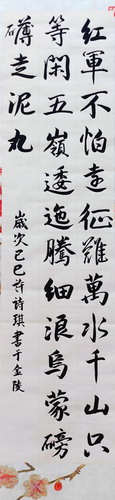 紅軍不怕遠征難萬水千山只
等閑五嶺逶迤騰細浪烏蒙磅
礴走泥丸
歲次己巳許詩琪書于金陵